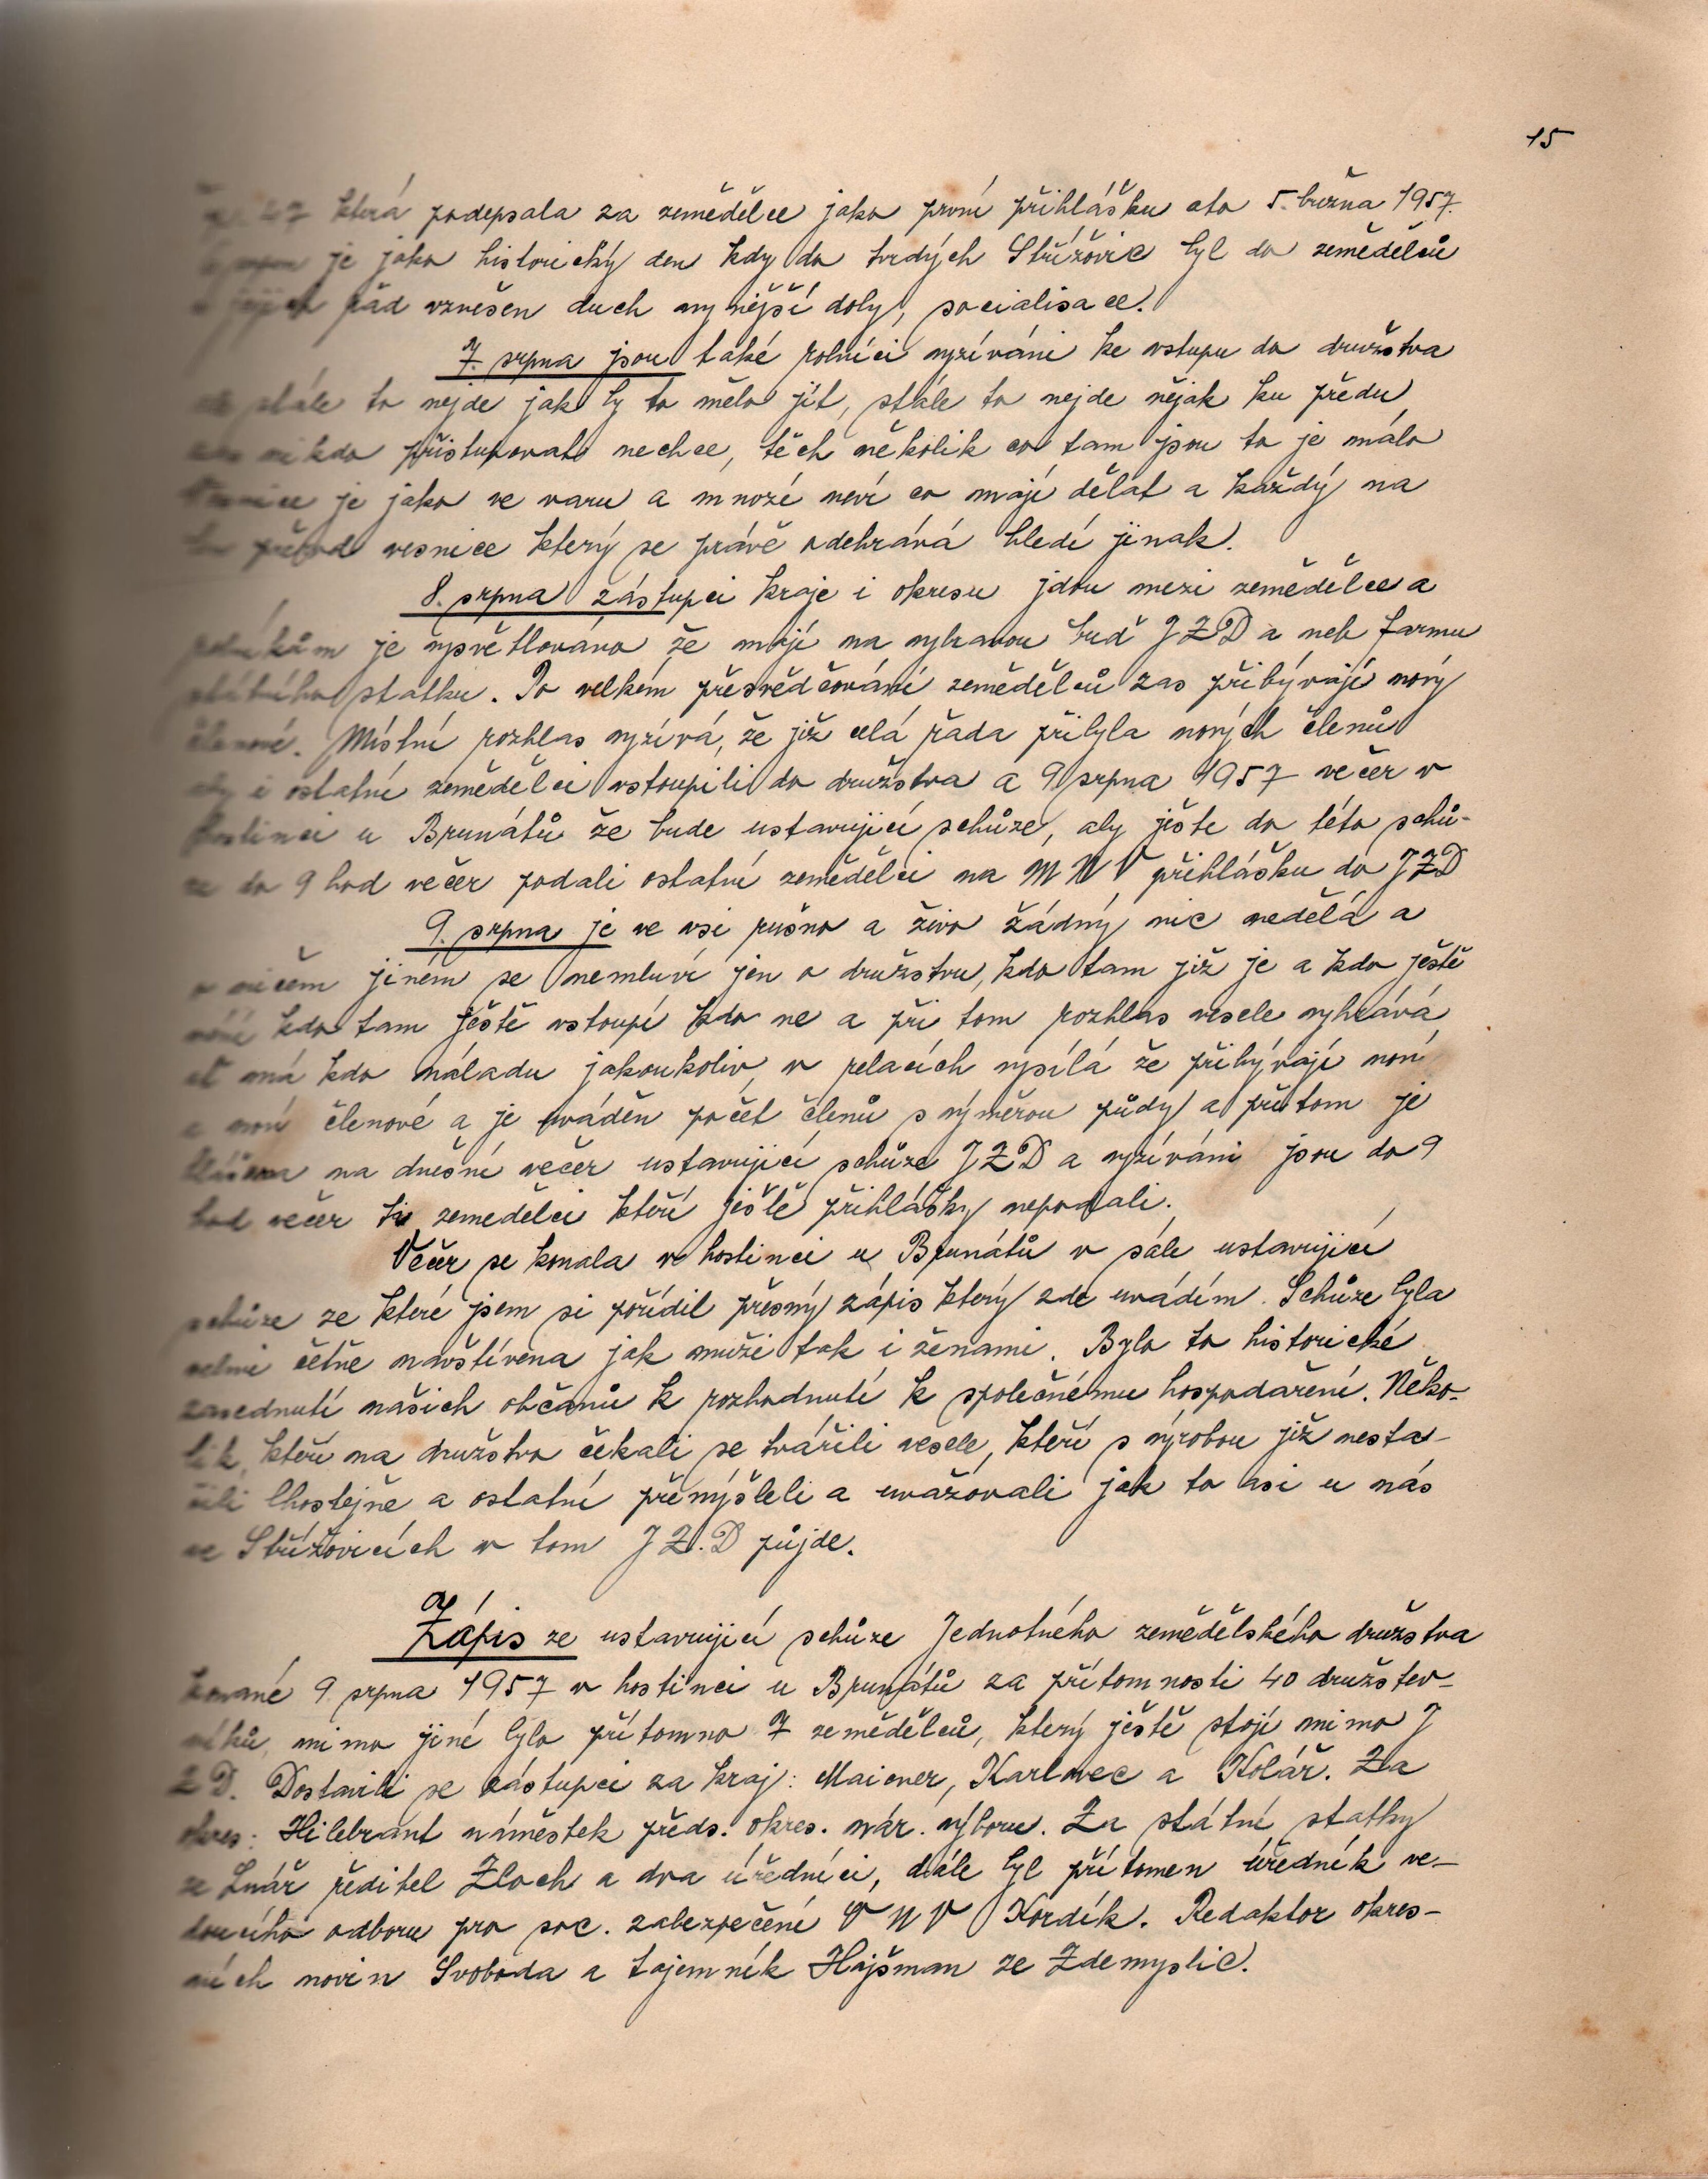 15
která podepsala za zemědělce jako první přihlášku ato 5. března 1957.
je jako historický den kdy do tvrdých Střížovic byl do zemědělců
řad vznešen duch nynější doby, socialisace.
7. srpna jsou také rolníci vyzíváni ke vstupu do družstva
stále to nejde jak by to mělo jít, stále to nejde nějak ku předu,
nikdo přistupovat nechce, těch několik co tam jsou to je málo
Vesnice je jako ve varu a mnozí neví co mají dělat a každý na
přerod vesnice který se právě odehrává hledí jinak.
8. srpna zástupci kraje i okresu jdou mezi zemědělce a
rolníkům je vysvětlováno že mají na vybranou buď JZD a neb farmu
státního statku. Po velkém přesvědčování zemědělců zas přibývají nový
členové. Místní rozhlas vyzívá, že již celá řada přibyla nových členů
aby i ostatní zemědělci vstoupili do družstva a 9 srpna 1957 večer v
hostinci u Brunátů že bude ustavující schůze, aby ješte do této schů-
ze do 9 hod večer podali ostatní zemědělci na MNV přihlášku do JZD
9. srpna je ve vsi rušno a živo žádný nic nedělá a
o ničem jiném se nemluví jen o družstvu, kdo tam již je a kdo ještě
není kdo tam ještě vstoupí kdo ne a při tom rozhlas vesele vyhrává,
ať má kdo náladu jakoukoliv, v relacích vysílá že přibývají noví
a noví členové a je uváděn počet členů s výměrou půdy a přitom je
hlášena na dnešní večer ustavující schůze JZD a vyzíváni jsou do 9
hod večer ti zemedělci kteří ještě přihlášky nepodali.
Večer se konala v hostinci u Brunátů v sále ustavující
schůze ze které jsem si pořídil přesný zápis který zde uvádím. Schůze byla
velmi četně navštívena jak muži tak i ženami. Bylo to historické
zasednutí našich občanů k rozhodnutí k společnému hospodaření. Něko-
lik, kteří na družstvo čekali se tvářili vesele, kteří s výrobou již nesta-
čili lhostejně a ostatní přemýšleli a uvažovali jak to asi u nás
ve Střížovicích v tom JZ.D půjde.
Zápis ze ustavující schůze Jednotného zemědělského družstva
konané 9. srpna 1957 v hostinci u Brunátů za přítomnosti 40 družstev-
níků, mimo jiné bylo přítomno 7 zemědělců, který ještě stojí mimo J
ZD. Dostavili se zástupci za kraj: Maicner, Karlovec a Kolář. Za
okres: Hilebrant náměstek předs. okres. nár. výboru. Za státní statky
ze Lnář ředitel Zloch a dva úředníci, dále byl přítomen úředník ve-
doucího odboru pro soc. zabezpečení ONV Kordík. Redaktor okres-
ních novin Svoboda a tajemník Hajšman ze Zdemyslic.